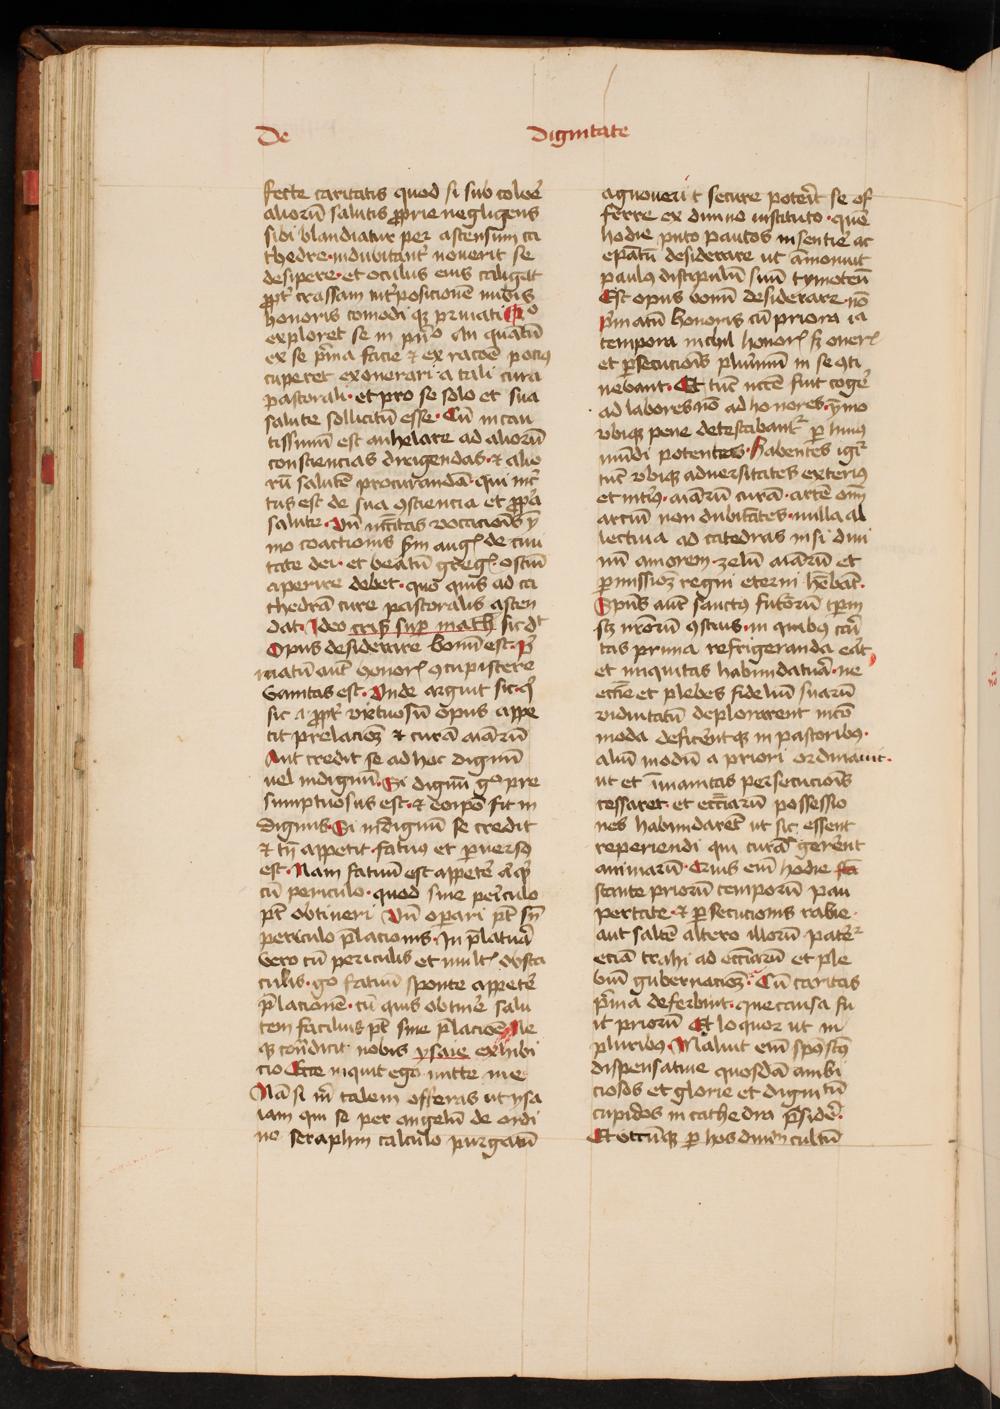 De Dignitate
fecte caritatis quod si sub coloē
aliorū salutis ꝓprie negligens
sibi blandiatur per ascensum ca
thedre·indubitant᷑ noverit se
desipere·et oculus eius caligat
ꝓpt᷑ crassam int᷑positionē nubis
honoris comodi qꝫ privati
exploret se in pn̄o An quantū
ex se p̄ma facie ⁊ ex racōē pocius
cuperet exonerari a tali cura
pastorali·et pro se solo et sua
salute sollicitū esse·Cū incau
tissimū est anhelare ad aliorū
consciencias dirigendas·⁊ alio
rū salutē procurandā·qui inc᷑
tus est de sua ꝯsciencia et ꝓp̄a
salute·Vn̄ nc̄citas vocacionis ȳ
mo coactionis scd̄m aug᷑ de civi
tate dei·et beatū greg᷑ ostiū
aperire debet·quo quis ad ca
thedrā cure pastoralis ascen
dat·Ideo cris᷑ sup math̄ sic dt
Opus desiderare bonū est·p̄
matū aut̄ honor᷑ ꝯcupiscere
vanitas est·Vnde arguit sic·q᷑
sic a ꝓpt᷑ virtuosū opus appe
tit prelacioꝫ ⁊ curā aīarū
Aut credit se ad hoc dignū
vel indignū·Si dignū gͦ pre
sumptuosus est·⁊ corpō fit in
dignus·Si indignū se credit
⁊ tn̄ appetit·fatuus et p̲versꝯ
est·Nam fatuū est appetē aliqͥd
cū periculo·quod sine periculo
pt̄ obtineri Vn̄ operari pt̄ sn̄
periculo p̄lacionis·In p̄latura
vero cū periculis et mult᷑ obsta
culis·gͦ fatuū sponte appetē
p̄lacionē·cū quis obtinē salu
tem facilius pt̄ sine p̄lacionē Ne
qꝫ cōducit nobis ysaie exhibi
cio Ecce inquit ego mitte me
Nā si m̄ talem offeras ut ysa
iam qui se per angelū de ordi
ne seraphin calculo purgatū
agnoverit secure poterit se of
ferre ex divino instituto·quē
hodie puto paucos insentīe ac
epatū desiderare ut āmonuit
paulus discipulū suū tymoteū
Est opus bonū desiderare·nō
p̄matū honoris cū priora ia
tempora nichil honor᷑ sꝫ oner᷑
et p̲secucionis plurimū in se ꝯti
nebant·Et tūc nc̄cē fuit cogē
ad labores nō ad honores·ȳmo
ubiqꝫ pene detestabant᷑ p̲ huiꝯ
mūdi potentes·Habentes igit᷑
tūc ubiqꝫ adversitates exteriꝯ
et intꝯ·aīarū curā·artē om̄
artiū non dubitātes·nulla al
lectiva ad catedras nisi divi
nū amorem·zelū aīarū et
p̲missioꝫ regni eterni hēbāt·
Spūs aut̄ sanctus futorū tp̄m
scꝫ nr̄orū ꝯscius·in quibus cari
tas prima refrigeranda eāt
et iniquitas habundatura·ne
ecc̄ie et plebes fideliū suarū
viduitatū deplorarent incō
moda deficientꝫ in pastoribꝰ·
aliū modū a priori ordinavit·
ut et īmanitas persecucionis
cessaret·et ecc̄iarū possessio
nes habundarēt ut sic essent
reperiendi qui curā gerēnt
animarū·Quis em̄ hodie
stante priorū temporū pau
pertate·⁊ p̲secucionis rabie·
aut saltē altero illorū pater᷑
eciā trahi ad ecc̄iarū et ple
biū gubernacioꝫ·Cū caritas
p̄ma deferbuit·que causa fu
it priorū Et loquor ut in
pluribꝰ·Maluit em̄ spūs scūs
dispensative quosdā ambi
ciosos et glorie et dignitū
cupidos in cathedra p̄sidē·
Et utcūqꝫ p̲ hos divin cultū